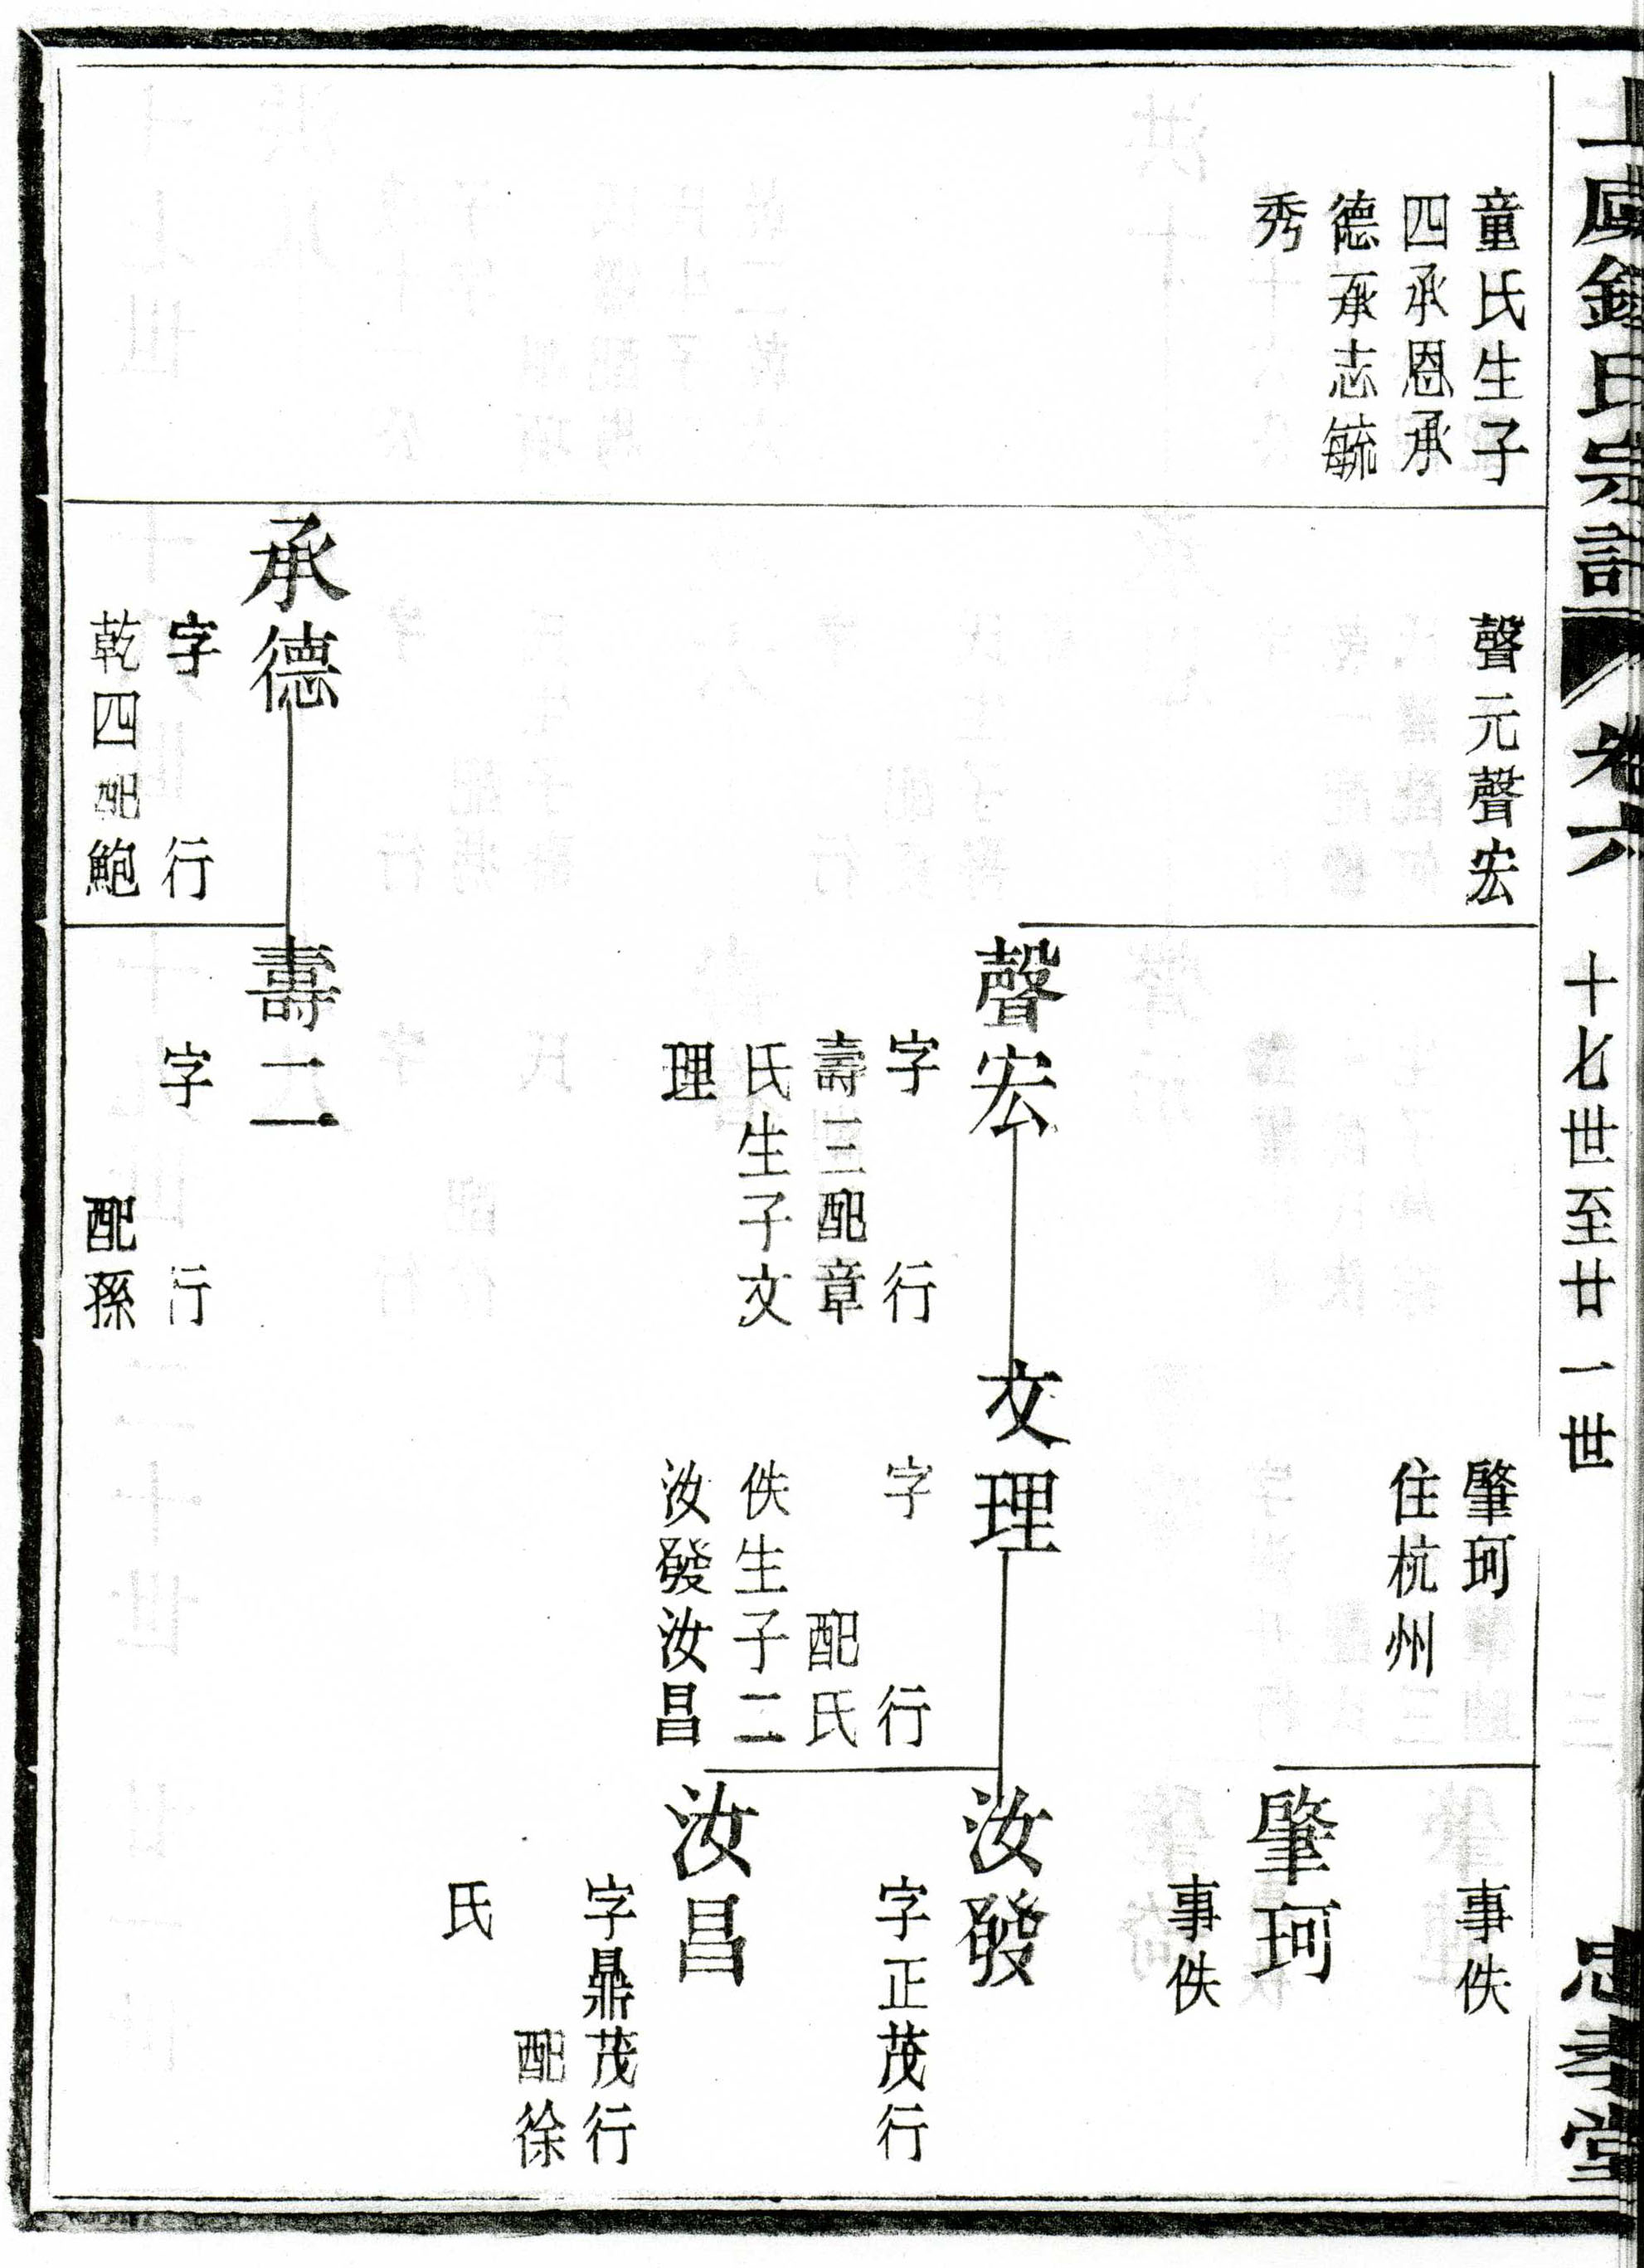 上虞錢氏宗譜
卷六
十七世至廿一世
忠孝堂
童氏生子
四承恩承
德承志毓
秀
聲元聲宏
肇珂
住杭州
事佚
肇珂
事佚
聲宏
字 行
壽三配章
氏生子文
理
文理
字 行
配氏
佚生子二
汝發汝昌
汝發
字正茂行
汝昌
字鼎茂行
配徐
氏
承德
字 行
乾四配鮑
壽二
字 行
配孫